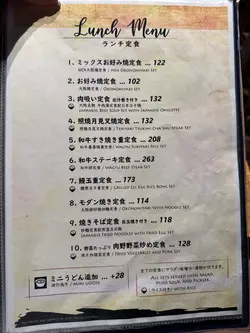 Lunch Menu
ランチ定食
1. ミックスお好み焼定食 ... 122
MIX大阪燒定食 / Mix Okonomiyaki Set
2. お好み焼定食 ... 102
大阪燒定食 / Okonomiyaki Set
3. 肉吸い定食 出汁巻き付き ... 132
Japanese Beef Soup Set with Japanese Omelette
4. 照焼月見叉焼定食 ... 132
Teriyaki Tsukimi Chashu Steak Set
5. 和牛すき焼き重定食 ... 208
Wagyu Sukiyaki Rice Set
6. 和牛ステーキ定食 ... 263
和牛排定食 / Wagyu Beef Steak Set
7. 鰻玉重定食 ... 173
Grilled Eel Egg Rice Bowl Set
8. モダン焼き定食 ... 114
Okonomiyaki with Noodles Set
9. 焼きそば定食 目玉焼き付 ... 118
Japanese Fried Noodles with Fried Egg Set
10. 野菜たっぷり 肉野野菜炒め定食 ... 128
Fried Vegetables and Pork Set
ミニうどん追加 ... +28
迷你烏冬 / Mini Udon
全ての定食にサラダ・味噌汁・漬物が付きます。
All sets served with salad,
miso soup, and pickles.
ライス付き / with Rice